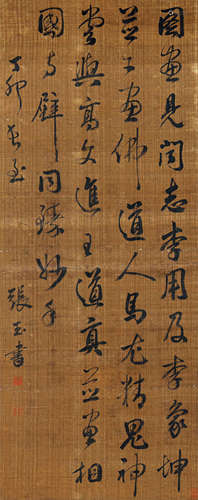 圖畫見聞志李用及李象坤
並工畫佛道人馬尤精鬼神
嘗與高文進王道真並畫相
國寺壁同臻妙手
丁卯長至
張玉書